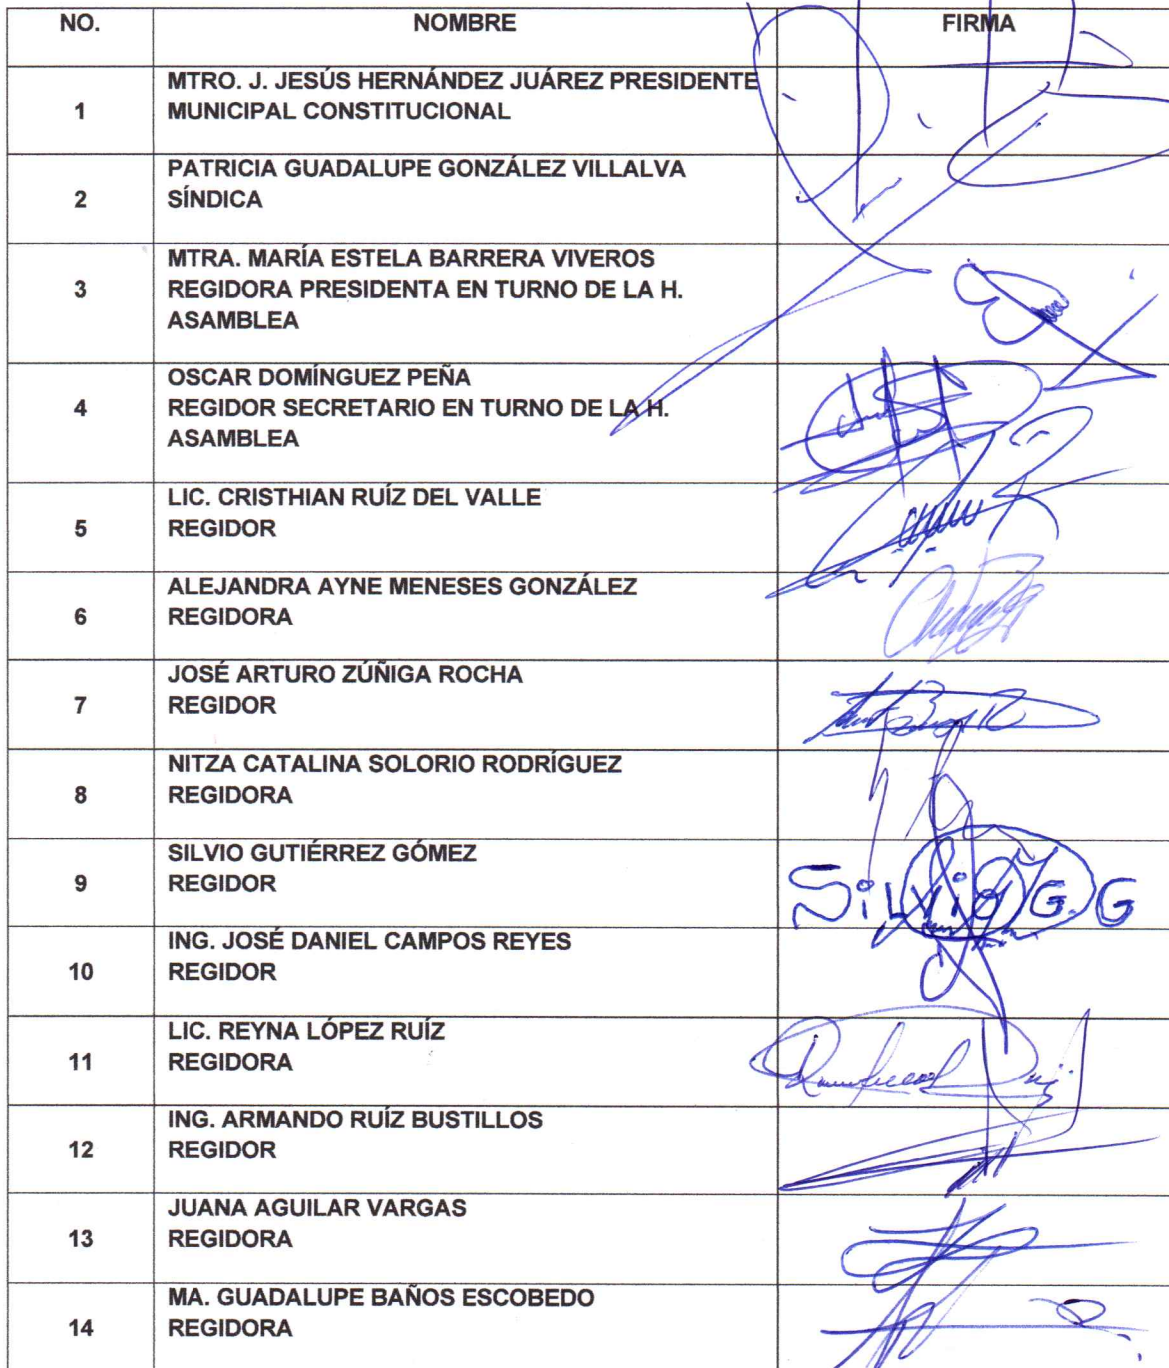 NO. NOMBRE FIRMA
MTRO. J. JESÚS HERNÁNDEZ JUÁREZ PRESIDENTE
1 MUNICIPAL CONSTITUCIONAL
PATRICIA GUADALUPE GONZÁLEZ VILLALVA
2 SÍNDICA
MTRA. MARÍA ESTELA BARRERA VIVEROS
3 REGIDORA PRESIDENTA EN TURNO DE LA H.
ASAMBLEA
OSCAR DOMÍNGUEZ PEÑA
4 REGIDOR SECRETARIO EN TURNO DE LA H.
ASAMBLEA
LIC. CRISTHIAN RUÍZ DEL VALLE
5 REGIDOR
ALEJANDRA AYNE MENESES GONZÁLEZ
6 REGIDORA
JOSÉ ARTURO ZÚÑIGA ROCHA
7 REGIDOR
NITZA CATALINA SOLORIO RODRÍGUEZ
8 REGIDORA
SILVIO GUTIÉRREZ GÓMEZ
9 REGIDOR Silvio G. G
ING. JOSÉ DANIEL CAMPOS REYES
10 REGIDOR
LIC. REYNA LÓPEZ RUÍZ
11 REGIDORA
ING. ARMANDO RUÍZ BUSTILLOS
12 REGIDOR
JUANA AGUILAR VARGAS
13 REGIDORA
MA. GUADALUPE BAÑOS ESCOBEDO
14 REGIDORA